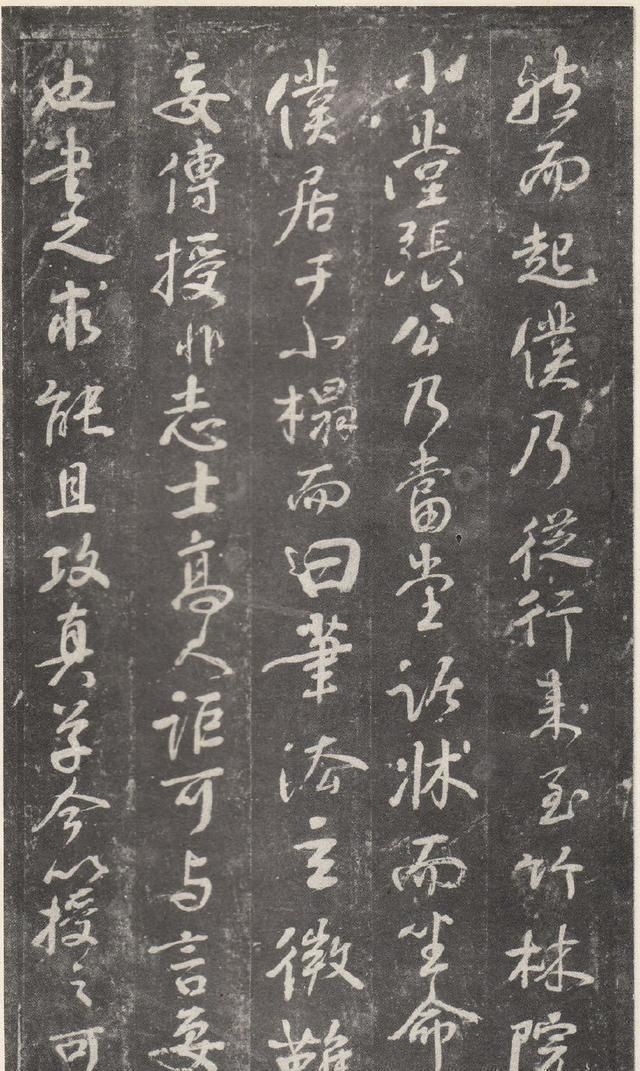 然而起僕乃從行来至竹林院
小堂張公乃當堂踞牀而坐命
僕居于小榻而曰筆法玄微難
妄傳授非志士高人詎可与言要
也書之求能且攻真草今以授之可